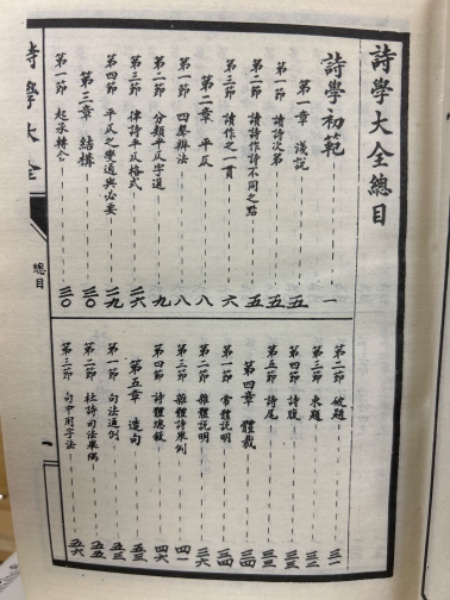 詩學大全總目
詩學初範 一
第一章 淺説 五
第一節 讀詩次第 五
第二節 讀詩作詩不同之點 五
第三節 讀作之一貫 六
第二章 平仄 八
第一節 四聲辦法 八
第二節 分類平仄字選 九
第三節 律詩平仄格式 二六
第四節 平仄之變通與必要 二九
第三章 結構 三〇
第一節 起承轉合 三〇
第二節 破題 三一
第三節 承題 三二
第四節 詩腹 三三
第五節 詩尾 三三
第四章 體裁 三四
第一節 常體説明 三四
第二節 雜體説明 三六
第三節 雜體詩舉例 四一
第四節 詩體總敘 四六
第五章 造句 五三
第一節 句法通例 五三
第二節 杜詩句法舉隅 五五
第三節 句中用字法 五六
詩學大全
總目
一